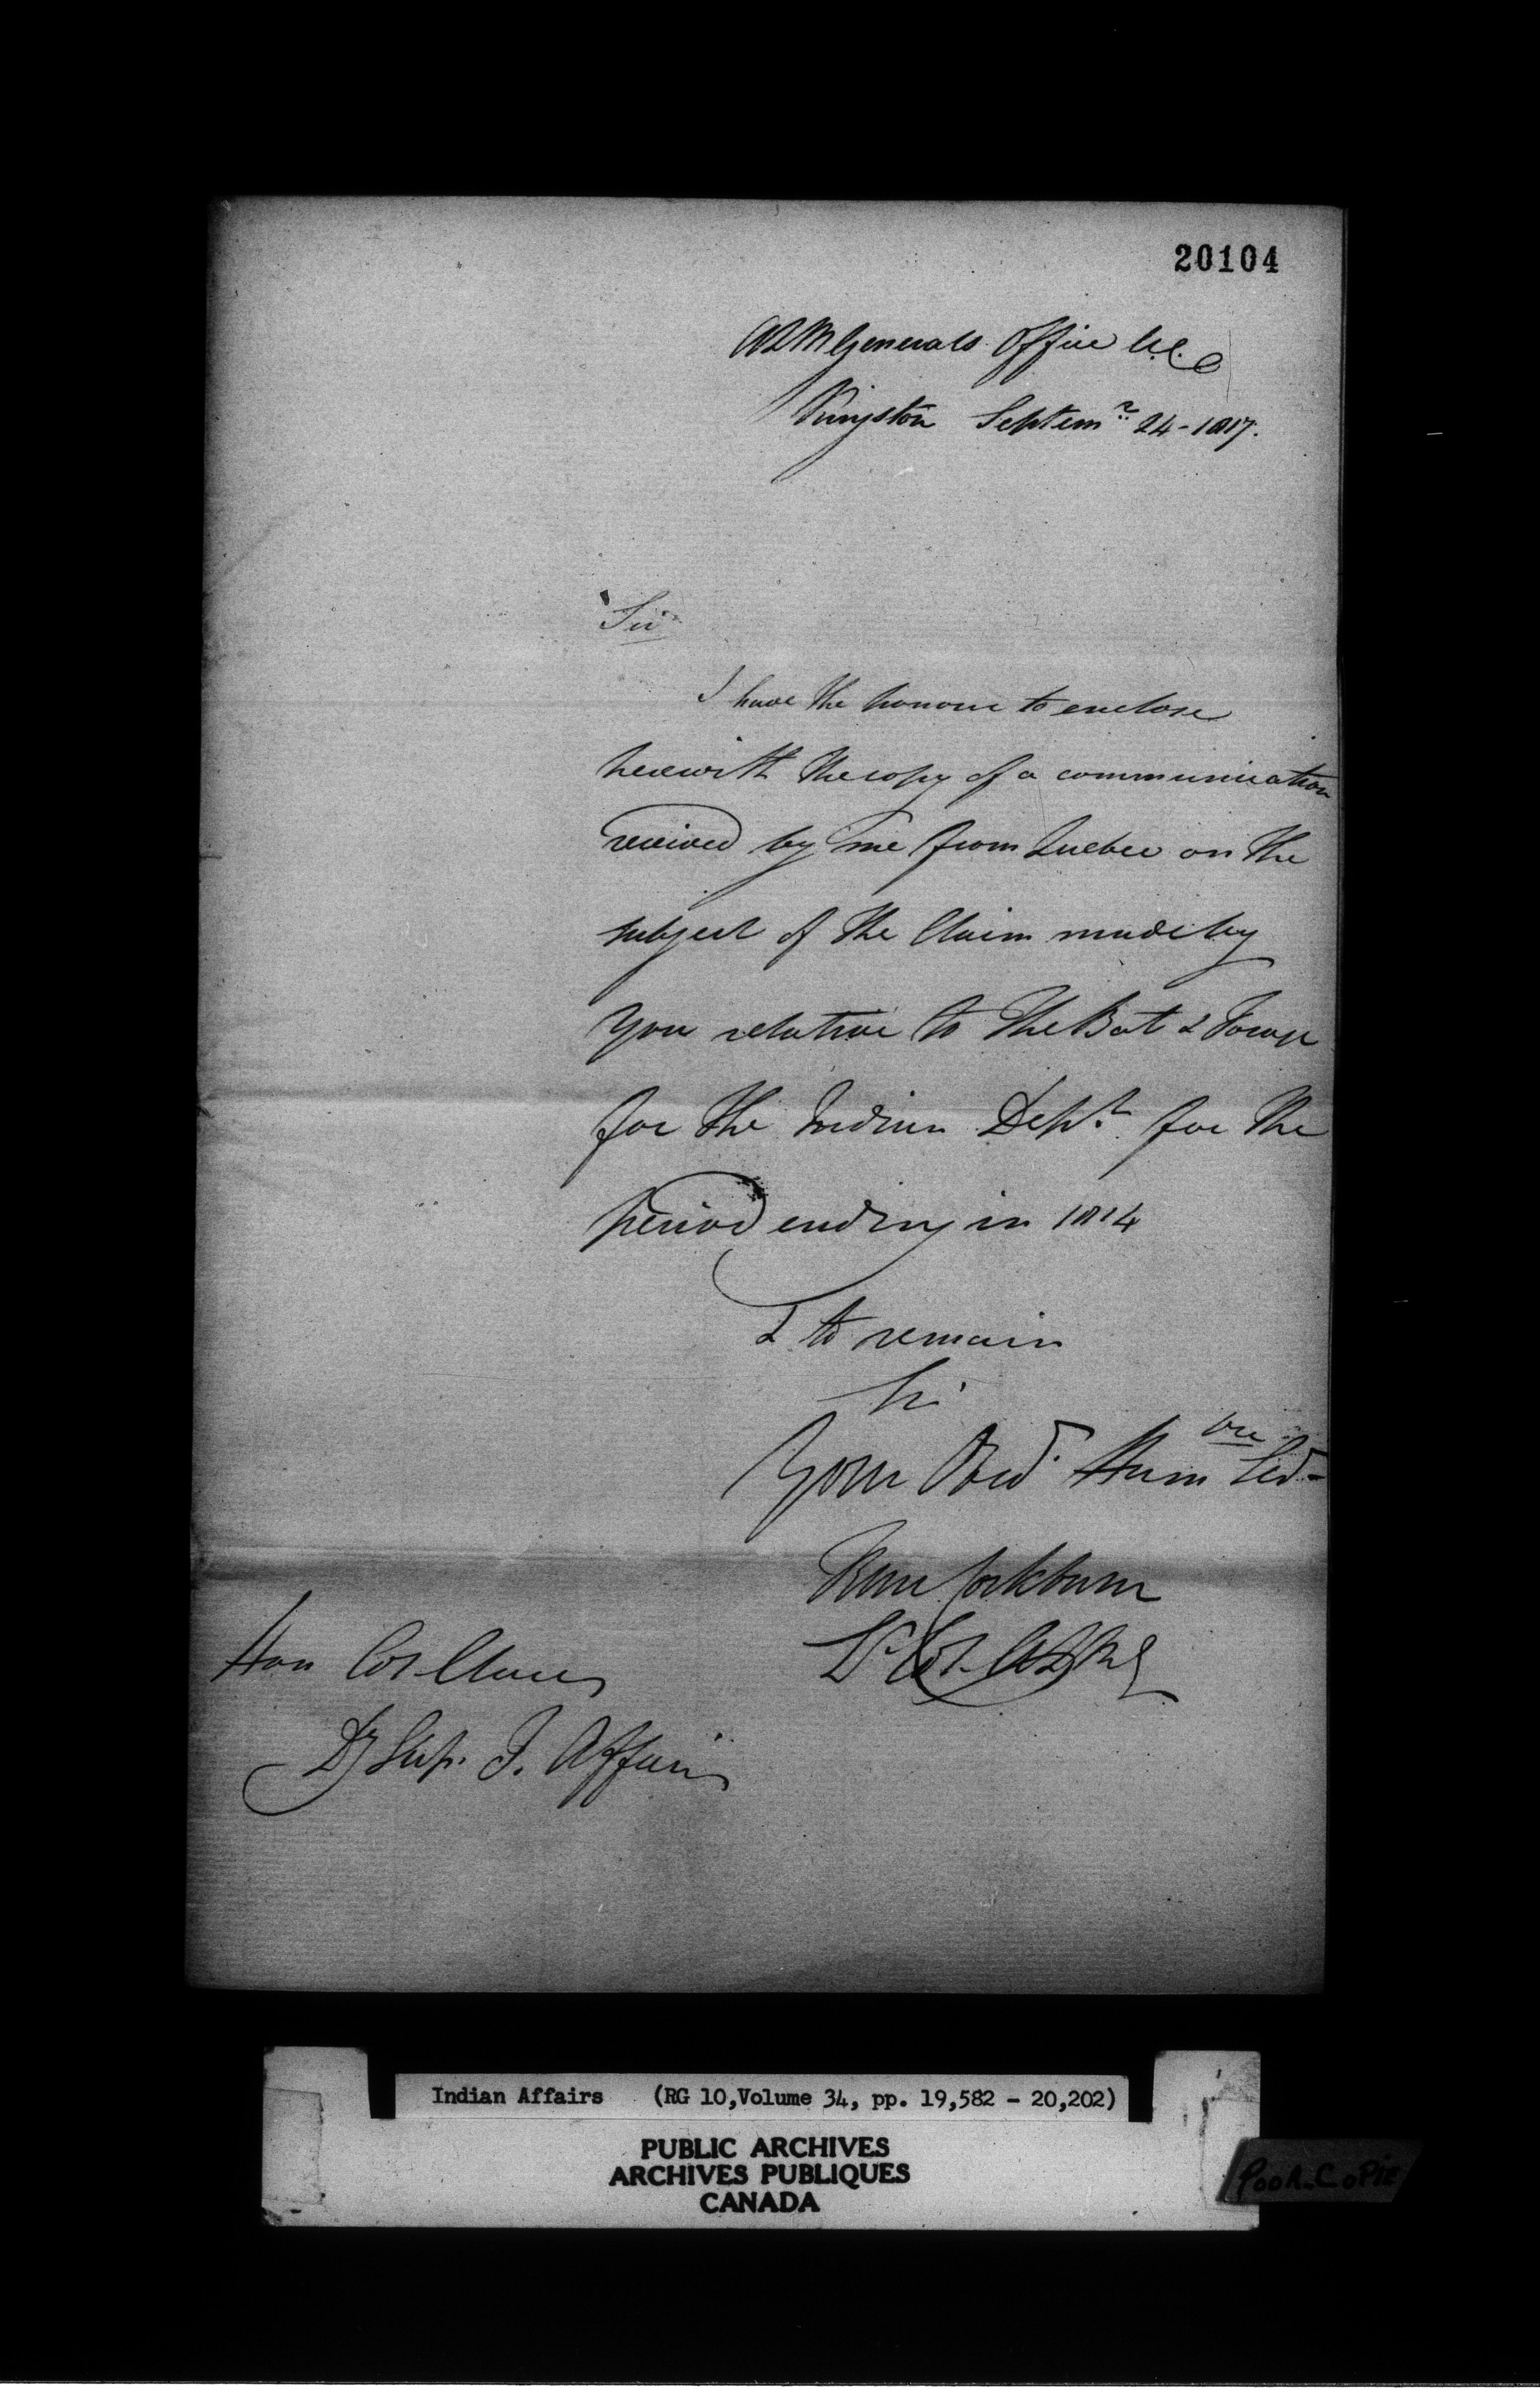 20104
AQMGenerals Office U.C.
Kingston Septemr 24 - 1817.
Sir
I have the honour to enclose
herewith the copy of a communication
received by me from Quebec on the
subject of the Claim made by
you relative to the Bat & Forage
for the Indian Dept for the
period ending in 1814
& to remain
Sir
Your Obed. Humble
Cockburn
Lt Col. AQMG
Hon Col Claus
Dy Sup. I. Affairs
Indian Affairs (RG 10,Volume 34, pp. 19,582 - 20,202)
PUBLIC ARCHIVES
ARCHIVES PUBLIQUES
CANADA
POOR COPIE